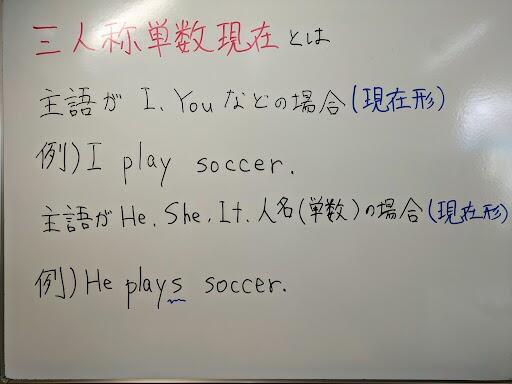 三人称単数現在とは
主語が I、Youなどの場合(現在形)
例)I play soccer.
主語がHe、She、It、人名(単数)の場合(現在形)
例)He plays soccer.